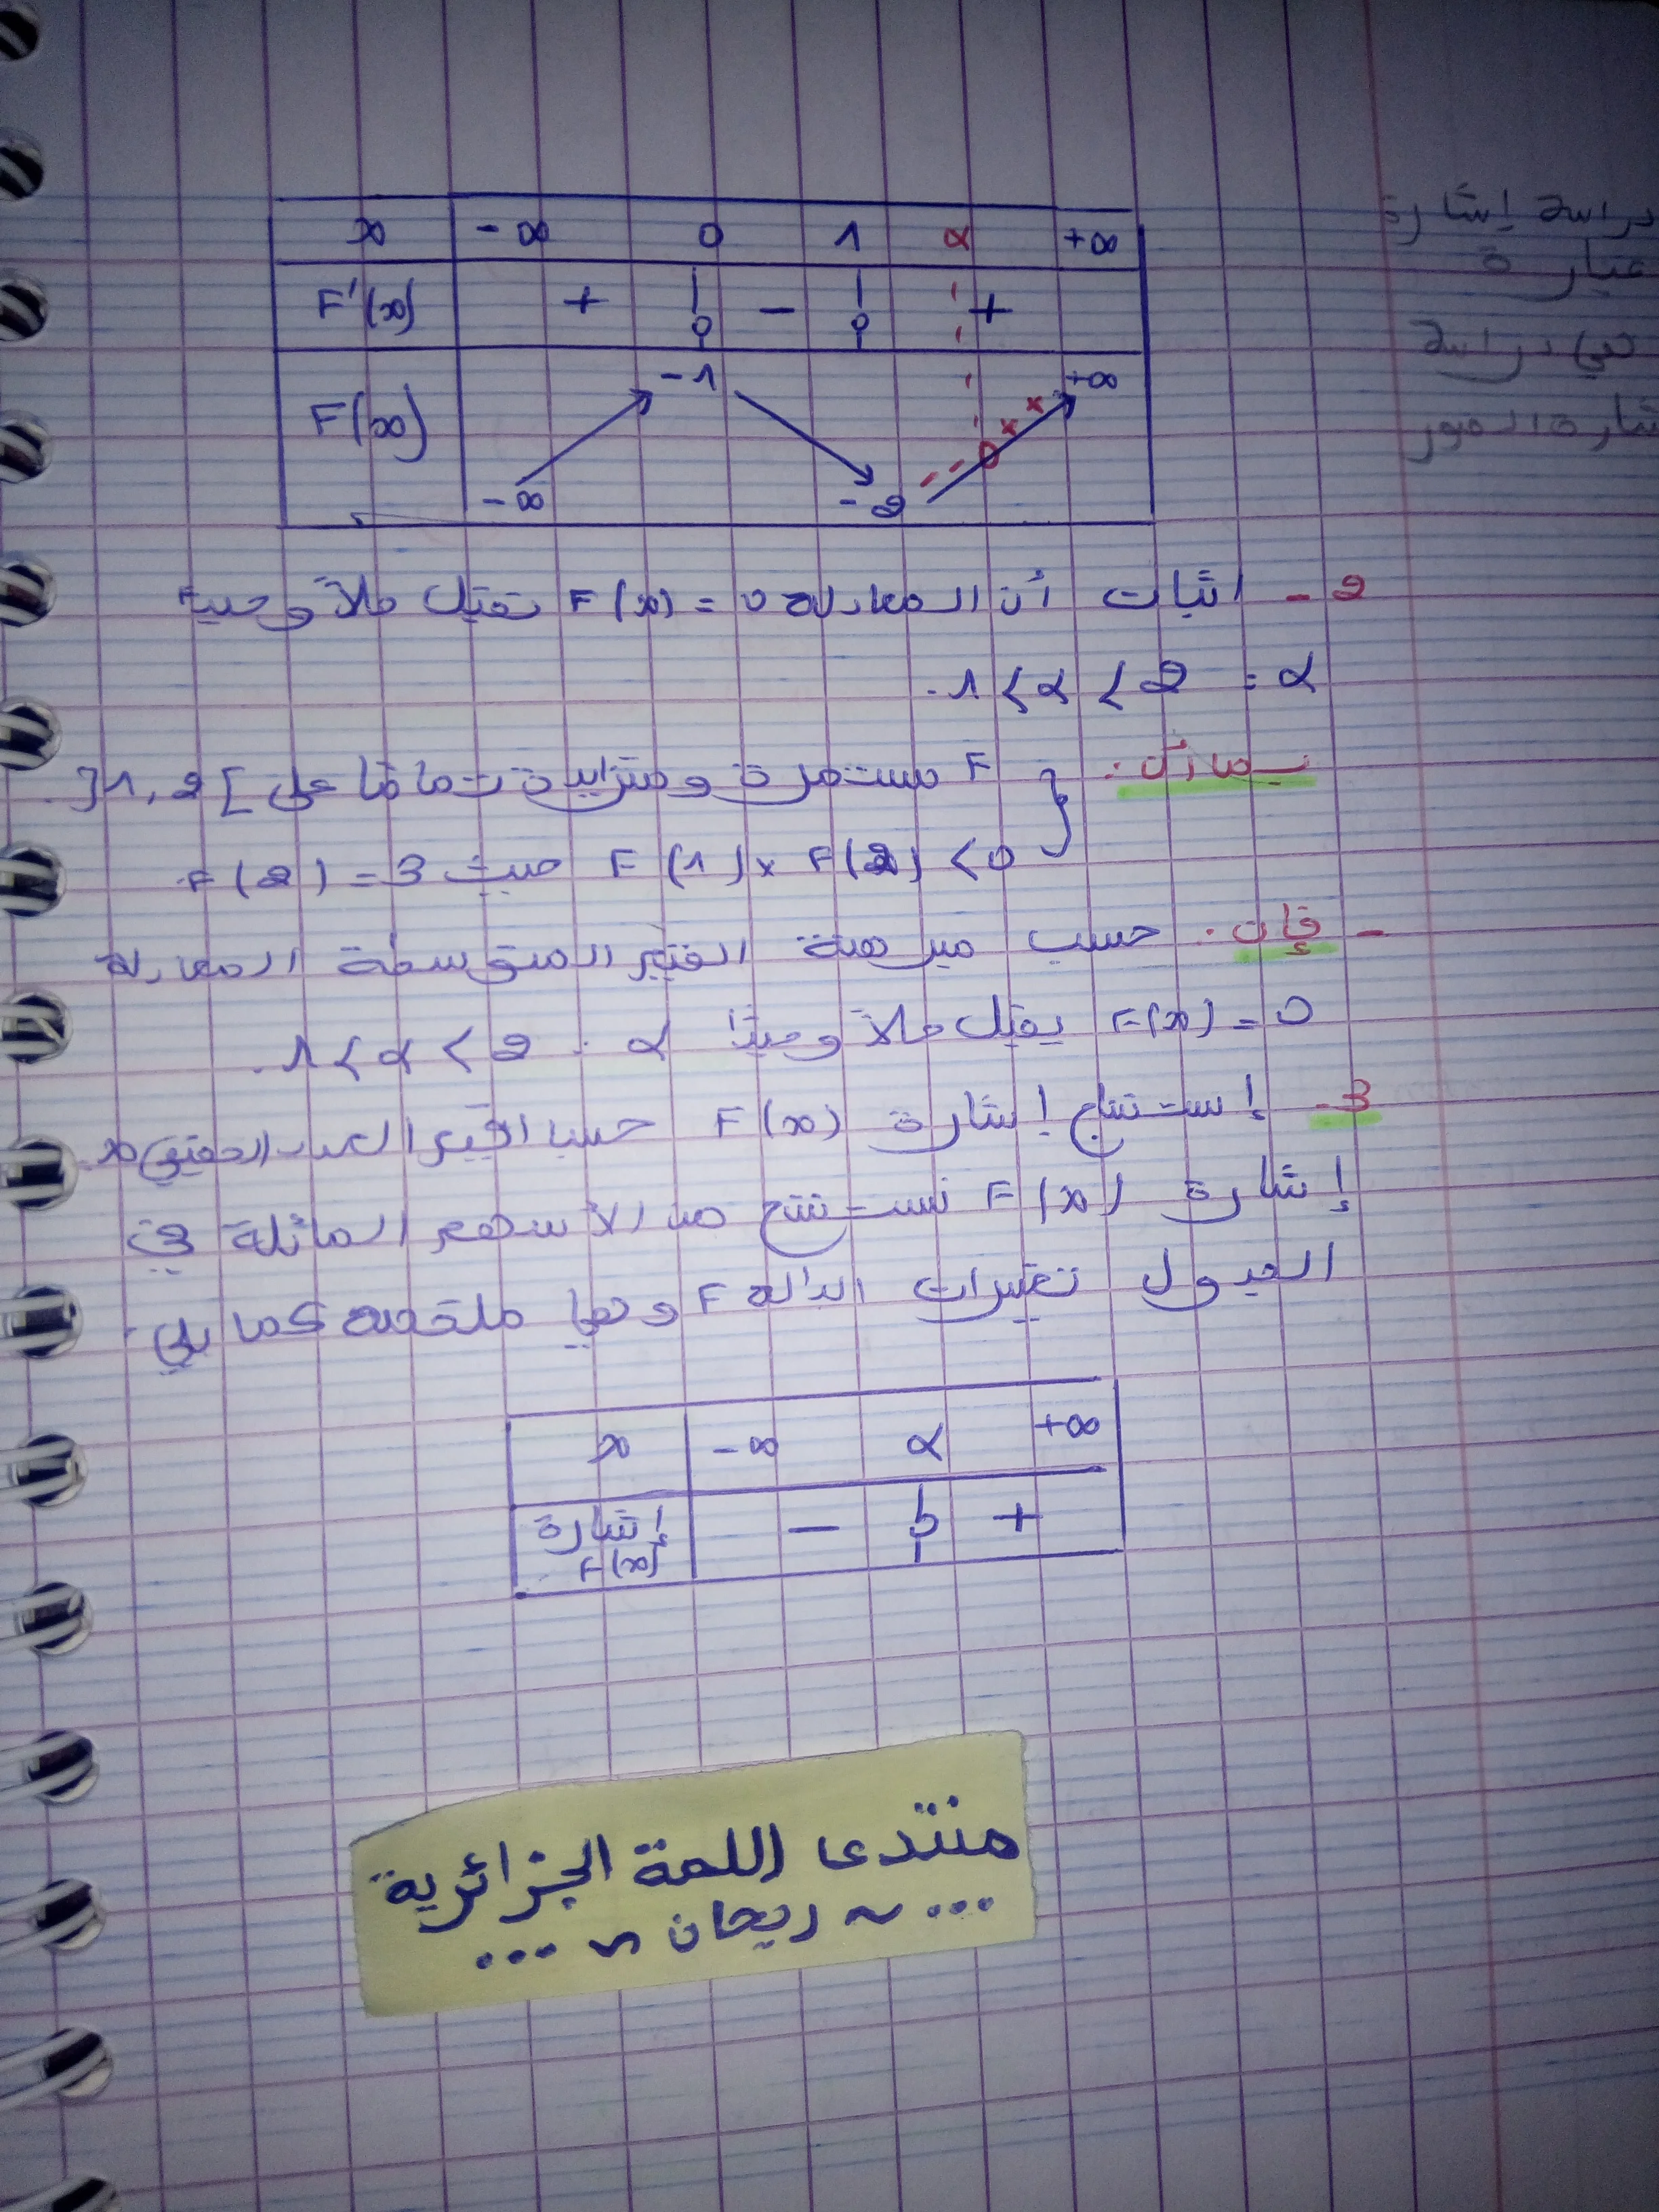 x -∞ 0 1 α +∞
F'(x) + 0 - 0 +
F(x) -∞ -1 -2 0 +∞
2 - اثبات أن المعادلة F(x) = 0 تقبل حلاً وحيدا
α : 1 < α < 2.
بما أن: F مستمرة ومتزايدة تماما على ]1,2[.
F(1) × F(2) < 0 حيث F(2) = 3
- فإن: حسب مبرهنة القيم المتوسطة المعادلة
F(x) = 0 يقبل حلاً وحيدًا α : 1 < α < 2.
3- إستنتاج إشارة F(x) حسب قيم العدد الحقيقي x.
إشارة F(x) نستنتج من الأسهم المائلة في
الجدول تغيرات الدالة F وهي ملخصة كما يلي:
x -∞ α +∞
إشارة F(x) - 0 +
منتدى اللمة الجزائرية
... ~ ريحان ~ ...
دراسة إشارة
عبارة
هي دراسة